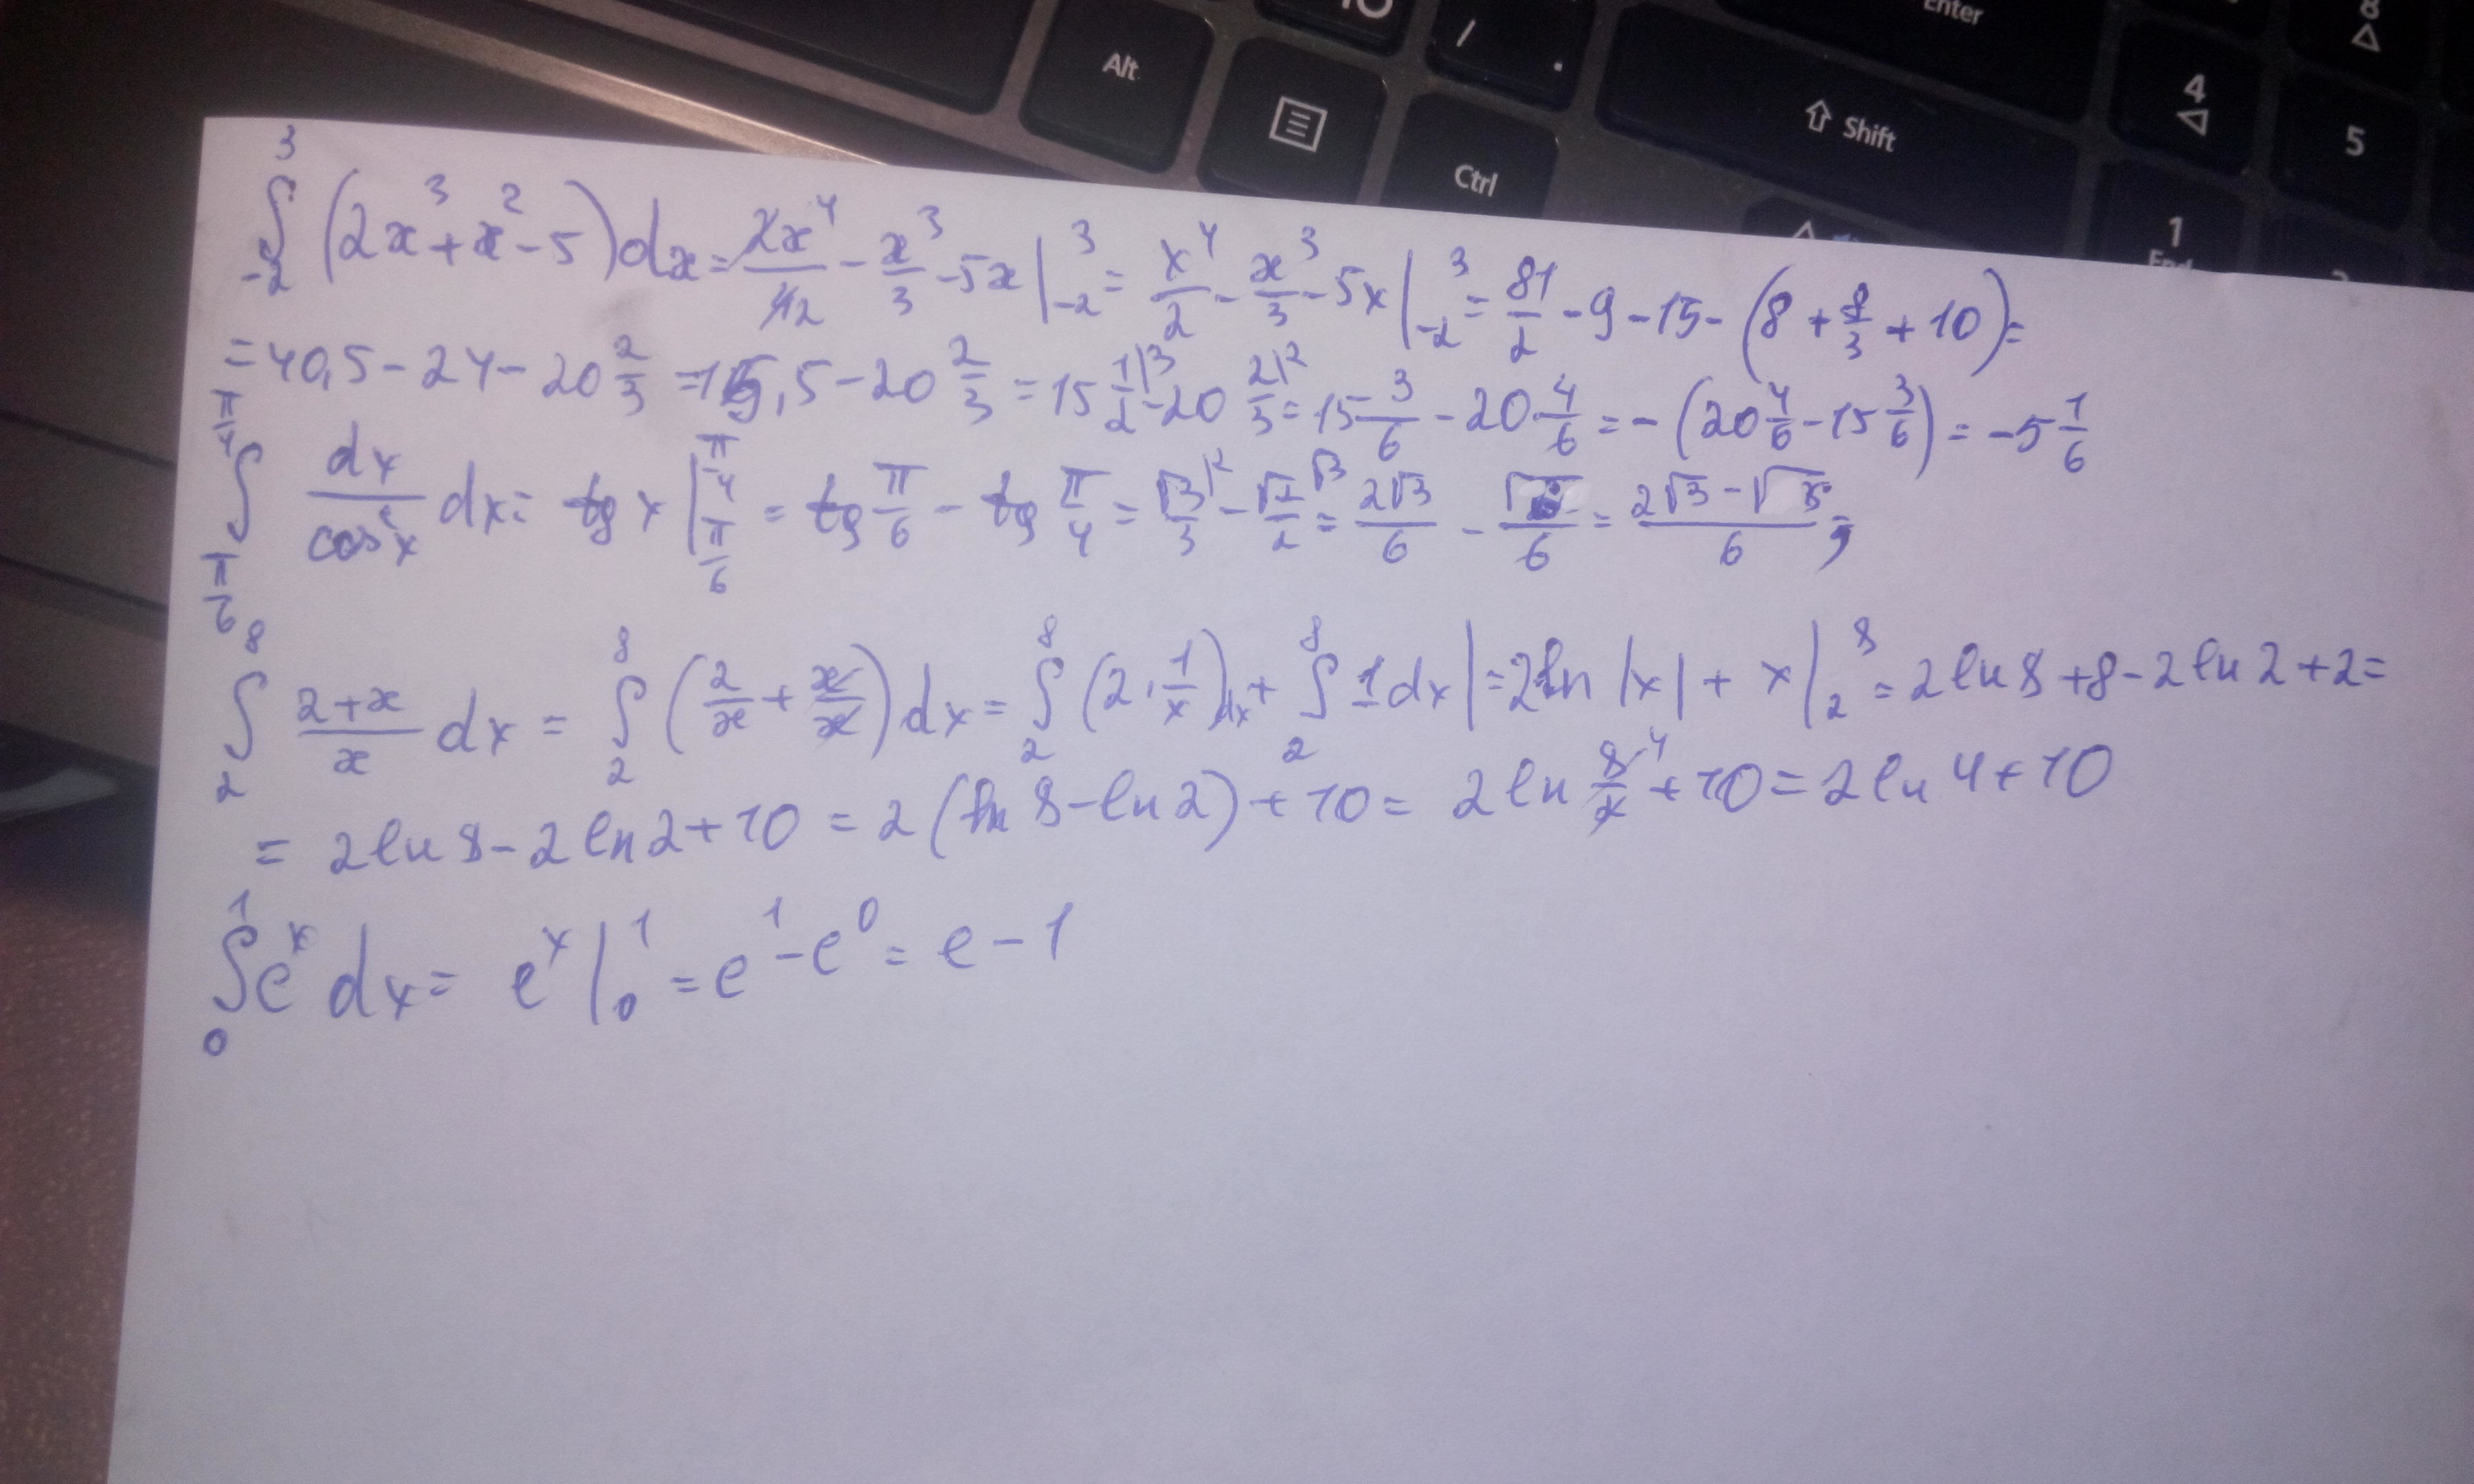 Enter
8
Alt
/ .
4
⇧ Shift
5
Ctrl
1
End
∫₋₂³ (2x³+x²-5)dx = 2x⁴/42 - x³/3 - 5x |₋₂³ = x⁴/2 - x³/3 - 5x |₋₂³ = 81/2 - 9 - 15 - (8 + 8/3 + 10) =
= 40,5 - 24 - 20 2/3 = 15,5 - 20 2/3 = 15 1/2|3 - 20 2/3|2 = 15 3/6 - 20 4/6 = - (20 4/6 - 15 3/6) = -5 1/6
∫_{π/6}^{π/4} dx/cos²x dx = tg x |_{π/6}^{π/4} = tg π/6 - tg π/4 = √3/3|2 - √2/2|√3 = 2√3/6 - /6 = /6;
∫₂⁸ 2+x/x dx = ∫₂⁸ (2/x + x/x) dx = ∫₂⁸ (2·1/x)dx + ∫₂⁸ 1 dx | = 2ln |x| + x |₂⁸ = 2 ln 8 + 8 - 2 ln 2 + 2 =
= 2 ln 8 - 2 ln 2 + 10 = 2 (ln 8 - ln 2) + 10 = 2 ln 8⁴/2 + 10 = 2 ln 4 + 10
∫₀¹ eˣ dx = eˣ |₀¹ = e¹ - e⁰ = e - 1